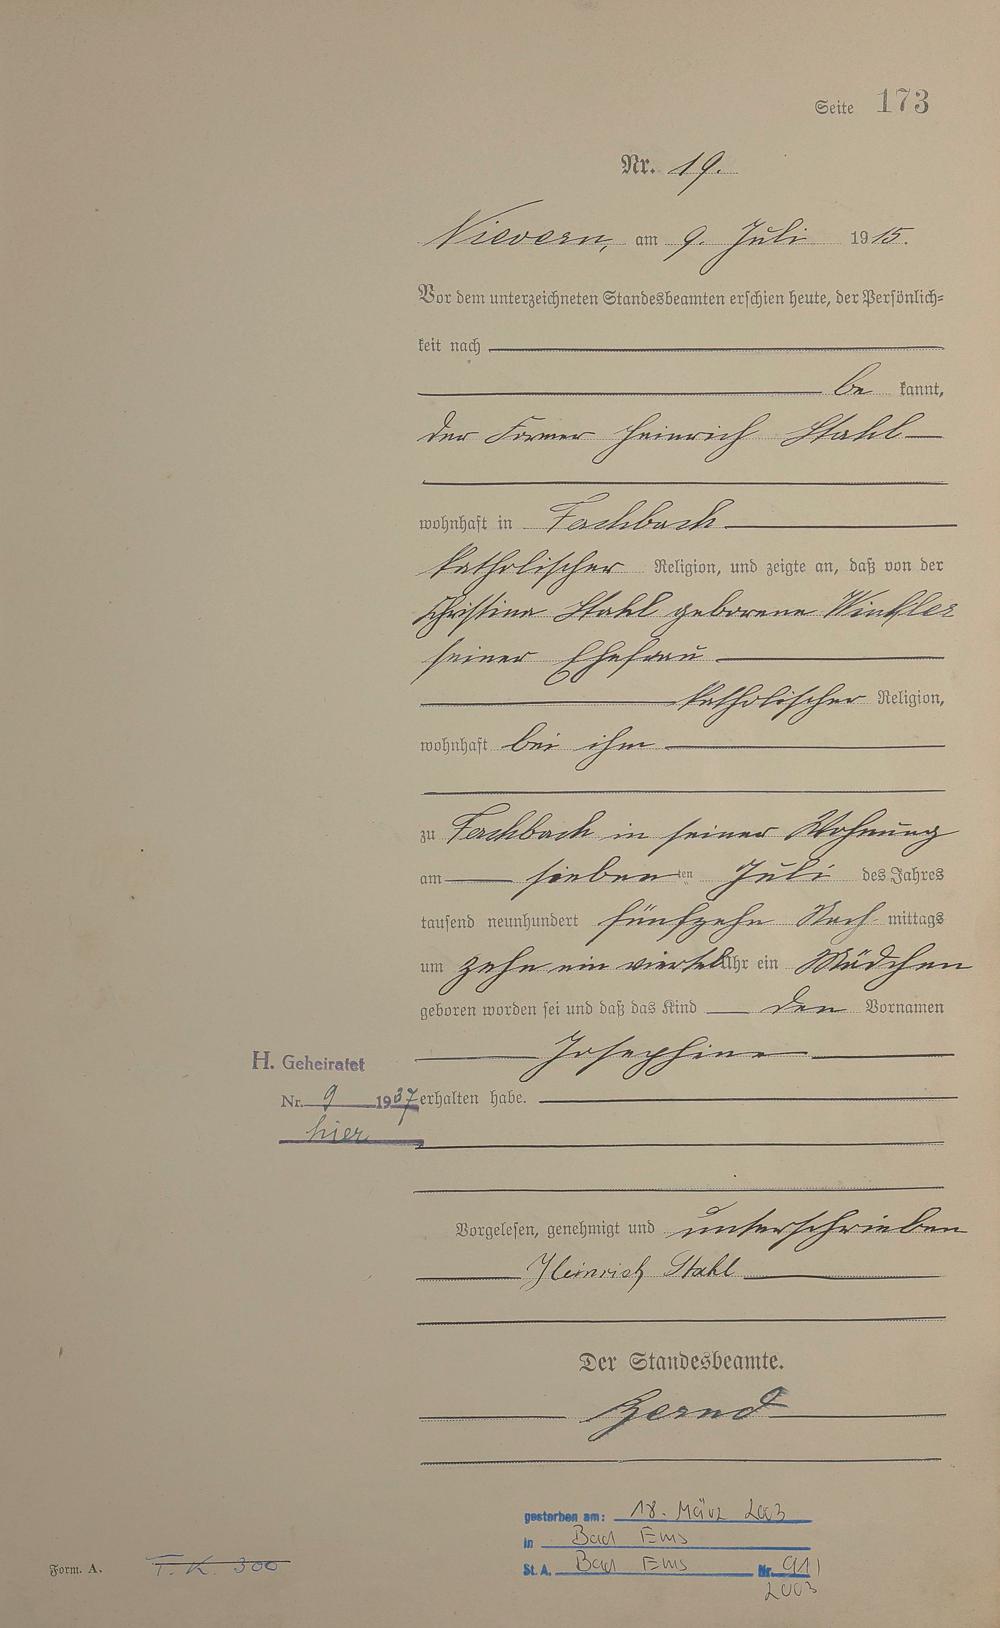 Seite 173
Nr. 19.
Nievern, am 9. Juli 1915.
Vor dem unterzeichneten Standesbeamten erschien heute, der Persönlich-
keit nach
be kannt,
der Former Heinrich Stahl
wohnhaft in Fachbach
katholischer Religion, und zeigte an, daß von der
Christina Stahl geborene Winkler
seiner Ehefrau
katholischer Religion,
wohnhaft bei ihm
zu Fachbach in seiner Wohnung
am sieben ten Juli des Jahres
tausend neunhundert fünfzehn Nach mittags
um zehn ein viertel Uhr ein Mädchen
geboren worden sei und daß das Kind den Vornamen
Josephine
H. Geheiratet
Nr. 9 1937 erhalten habe.
hier
Vorgelesen, genehmigt und unterschrieben
Heinrich Stahl
Der Standesbeamte.
gestorben am: 18. März 2003
in Bad Ems
St. A. Bad Ems Nr. 91/
2003
Form. A. T. K. 300